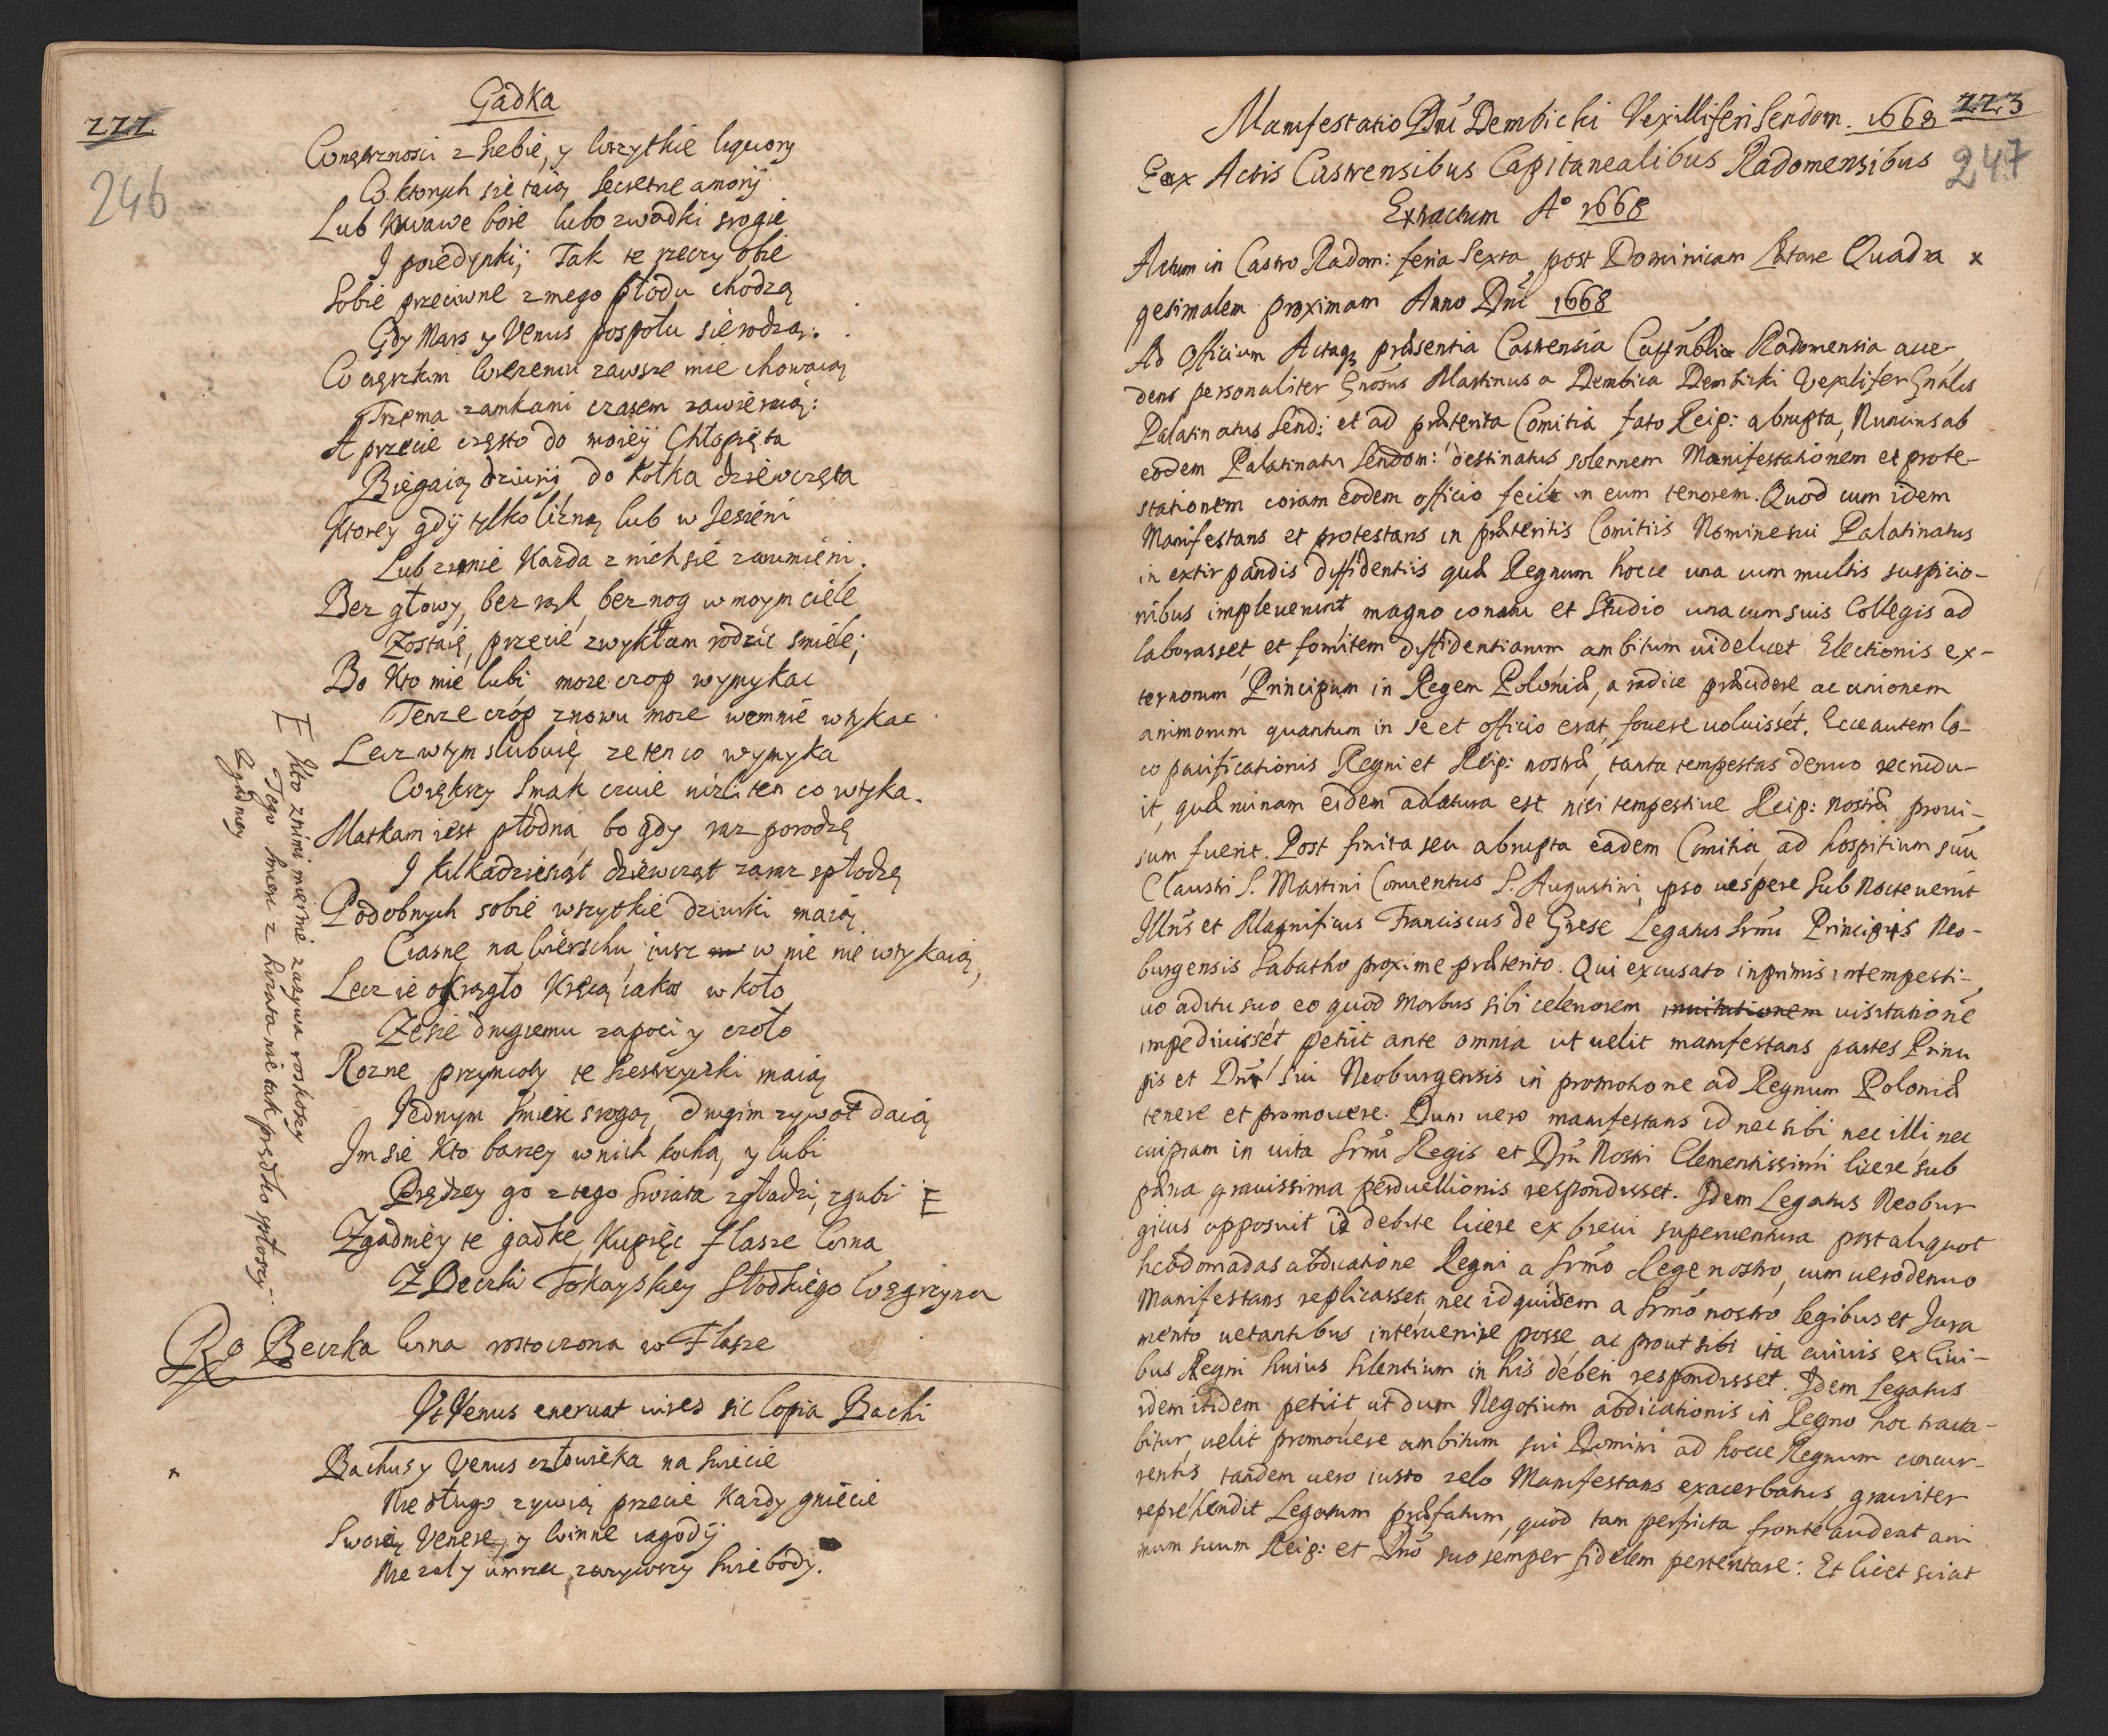 222
246
Gadka
Wnętrznosci z siebie, y wszytkie liquory
W ktorych się taią secretne amory
Lub krwawe boie lubo zwadki srogie
I poiedynki; Tak te rzeczy obie
Sobie przeciwne z mego płodu chodzą
Gdy Mars y Venus pospołu się rodzą.
W cięszkim więzeniu zawsze mie chowaią
Trzema zamkami czasem zawieraią:
A przecie często do moiey Chłopięta
Biegaią dziury do kołka dziewczęta
Ktorey gdy tylko lizną lub w Jesieni
Lub zimie Kazda z nich sie zarumieni.
Bez głowy, bez rąk, bez nog w moym ciele
Zostaię, przecie zwykłam rodzic smiele;
Bo kto mie lubi moze czop wymykac
Tenze czop znowu moze wemnie wtykac
Lecz wtym slubuię ze ten co wymyka
Większy smak czuie nizli ten co wtyka.
Matkam iest płodna bo gdy raz porodzę
I kilkadziesiąt dziewcząt zaraz spłodzę
Podobnych sobie wszytkie dziurki maią
Ciasne na wierschu, iusz w nie nie wtykaią,
Lecz ie okrągło kręcą iakos w koło
Ze sie drugiemu zapoci y czoło
Rozne przymioty te siestrzyczki maią
Jednym smierc srogą, drugim zywot daią
Im sie kto barzey w nich kocha, y lubi
Prędzey go z tego swiata zgładzi, zgubi E
Zgadniey te gadkę, kupięc flasze wina
Z Beczki Tokayskiey słodkiego Węgrzyna
E Kto z nimi miernie zazywa roskoszy
Tego smierc z swiata nie tak prędko spłoszy.
Zgadniey
Rp Beczka wina rostoczona w Flasze
Ut Venus eneruat uires sic Copia Bachi
Bachus y Venus człowieka na swiecie
Nie długo zywią przecie Kazdy gniecie
Swoię Venerę, y winne iagody
Nie zal y umrzec zazywszy swiebody.
223
247
Manifestatio Dni Dembicki Vexilliferi Sendom. 1668
Eex Actis Castrensibus Capitanealibus Radomensibus
Extractum Ao 1668
Actum in Castro Radom: feria sexta post Dominicam Lætare Quadra x
gesimalem proximam Anno Dni 1668
Ad Officium Actaq; præsentia Castrensia Radomensia acce-
dens personaliter Gnosus Martinus a Dembica Dembicki Vexilifer Gnalis
Palatinatus Send: et ad præterita Comitia fato Reip: abrupta, Nuncius ab
eodem Palatinatu Sendom: destinatus solennem Manifestationem et prote-
stationem coram eodem officio fecit in eum tenorem. Quod cum idem
Manifestans et protestans in præteritis Comitiis Nomine sui Palatinatus
in extirpandis diffidentiis quæ Regnum hocce una cum multis suspicio-
nibus impleuerunt, magno conatu et Studio una cum suis Collegis ad
laborasset et fomitem diffidentiarum ambitum uidelicet Electionis ex-
ternorum Principum in Regem Poloniæ, a radice præcidere ac unionem
animorum quantum in se et officio erat, fouere uoluisset. Ecce autem lo-
co pacificationis Regni et Reip: nostræ, tanta tempestas denuo recrudu-
it, quæ ruinam eidem adlatura est nisi tempestiue Reip: nostræ proui-
sum fuerit. Post finita seu abrupta eadem Comitia, ad hospitium suu
Claustri S. Martini Conuentus S. Augustini, ipso uespere sub nocte uenit
Illris et Magnificus Franciscus de Grese Legatus Srmi Principis Neo-
burgensis Sabatho proxime præterito. Qui excusato inprimis intempesti-
uo aditu suo, eo quod Morbus sibi celeriorem inuitationem uisitatione
impediuisset petiit ante omnia ut uelit manifestans partes Princi
pis et Dni sui Neoburgensis in promotione ad Regnum Poloniæ
tenere et promouere. Dum uero manifestans id nec sibi, nec illi nec
cuipiam in uita Srmi Regis et Dni Nostri Clementissimi licere sub
pæna grauissima perduellionis respondisset. Idem Legatus Neobur
gicus opposuit id debere licere ex breui superuentura post aliquot
hebdomadas abdicatione Regni a Srmo Rege nostro, cum uero denuo
Manifestans replicasset nec id quidem a Srmo nostro legibus et Jura
mento uetantibus interuenire posse, ac prout sibi ita cuiuis ex Ciui-
bus Regni huius silentium in his deberi respondisset. Idem Legatus
idem itidem petiit ut dum Negotium abdicationis in Regno hoc tracta-
bitur, uelit promouere ambitum sui Domini ad hocce Regnum concur-
rentis, tandem uero iusto zelo Manifestans exacerbatus, grauiter
reprehendit Legatum præfatum, quod tam perfricta fronte audeat ani
mum suum Reip: et Dno suo semper fidelem pertentare: Et licet sciat